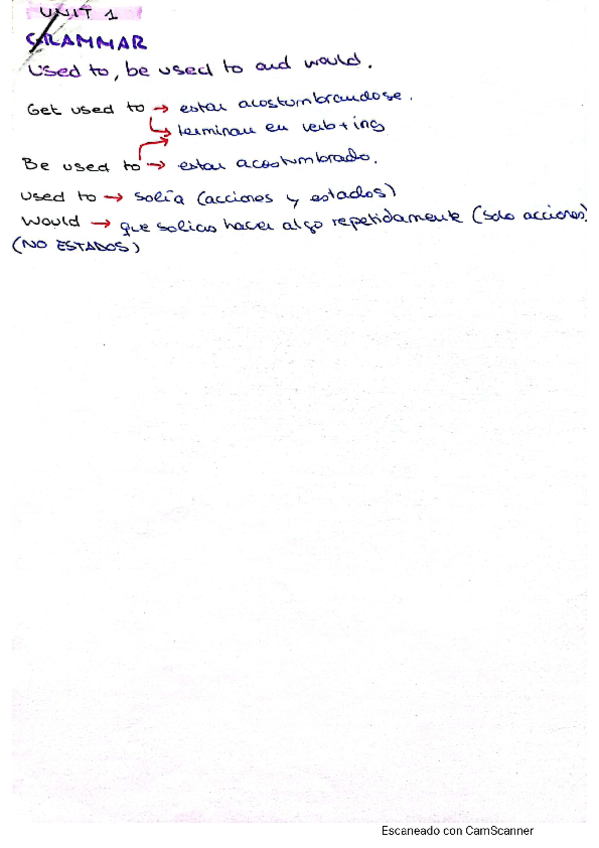 UNIT 1
GRAMMAR
Used to, be used to and would.
Get used to → estar acostumbrandose.
→ terminan en verb+ing
Be used to → estar acostumbrado.
used to → solía (acciones y estados)
Would → que solias hacer algo repetidamente (solo acciones)
(NO ESTADOS)
Escaneado con CamScanner